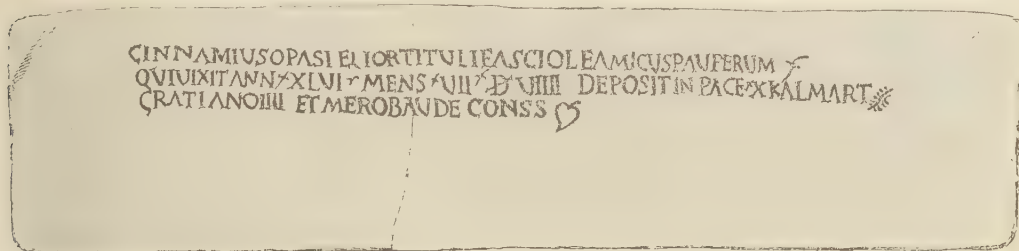 CINNAMIUSOPASLECTORTITVLIFASCIOLEAMICUSPAUPERUM
QVIVIXITANN XLVI MENS VII D VIIII DEPOSITIN PACE XKALMART
GRATIANOIIII ET MEROBAVDE CONSS